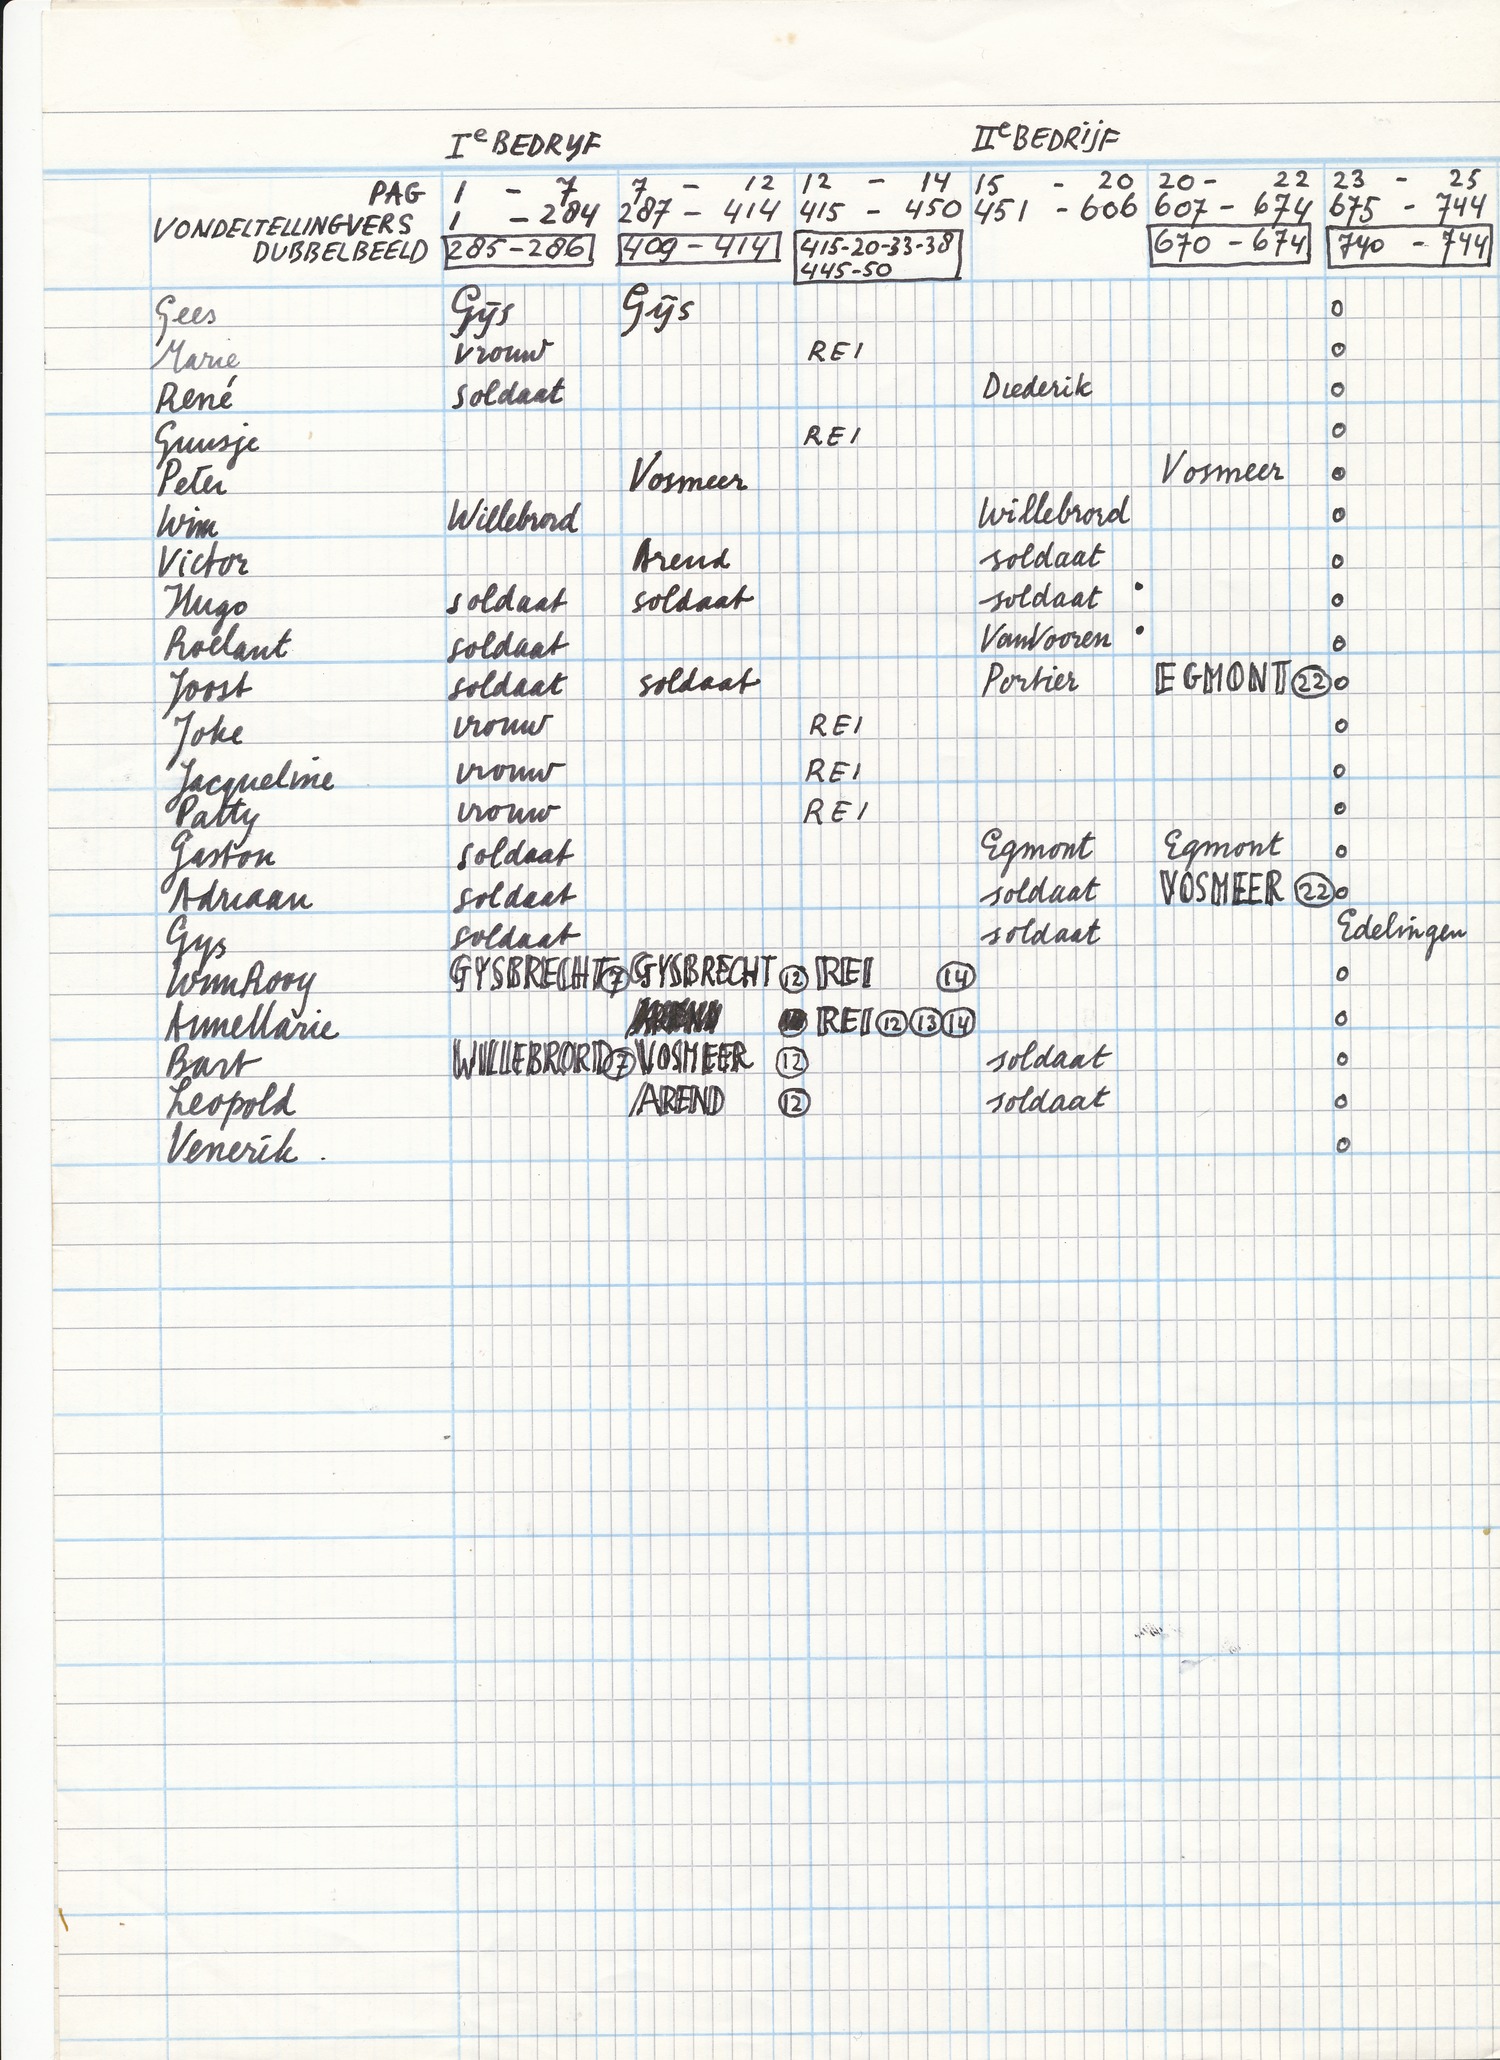 Iᵉ BEDRYF IIᵉ BEDRIJF
PAG 1 - 7 7 - 12 12 - 14 15 - 20 20 - 22 23 - 25
VONDELTELLINGVERS 1 - 284 287 - 414 415 - 450 451 - 606 607 - 674 675 - 744
DUBBELBEELD 285-286 409-414 415-20-33-38 670-674 740 - 744
445-50
Gees Gijs Gijs o
Marie vrouw REI o
René soldaat Diederik o
Guusje REI o
Peter Vosmeer Vosmeer o
Wim Willebrord Willebrord o
Victor Arend soldaat o
Hugo soldaat soldaat soldaat • o
Roelant soldaat VanVooren • o
Joost soldaat soldaat Portier EGMONT 22 o
Joke vrouw REI o
Jacqueline vrouw REI o
Patty vrouw REI o
Gaston soldaat Egmont Egmont o
Adriaan soldaat soldaat VOSMEER 22 o
Gys soldaat soldaat Edelingen
WimRooy GYSBRECHT 7 GYSBRECHT 12 REI 14 o
AnneMarie REI 12 13 14 o
Bart WILLEBRORD 7 VOSMEER 12 soldaat o
Leopold AREND 12 soldaat o
Venerik . o